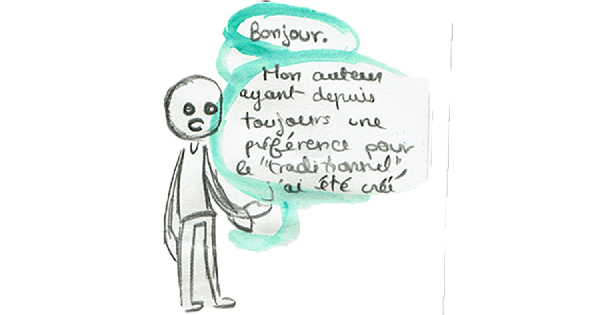 Bonjour.
Mon auteur
ayant depuis
toujours une
préférence pour
le "traditionnel"
j'ai été créé